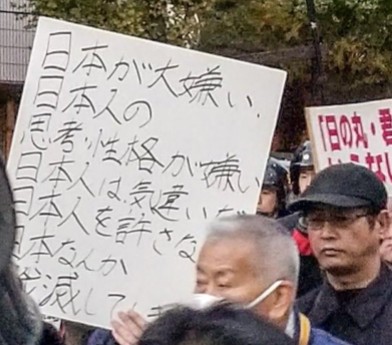 日本が大嫌い.
日本人の
思考・性格が嫌い
日本人は気違いだ
日本人を許さな
日本なんか
滅して
「日の丸・君
いらない